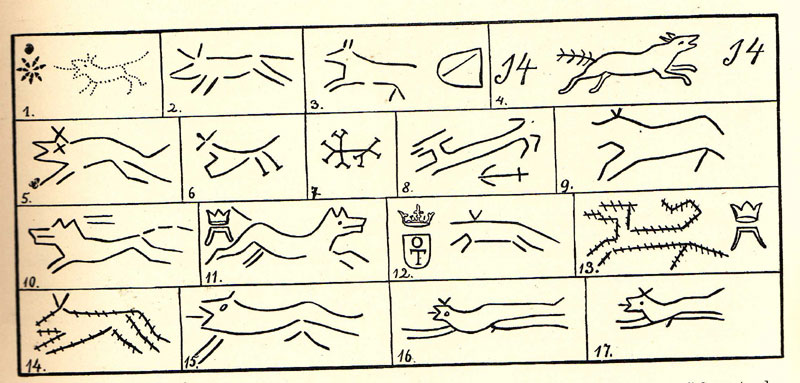 1.
2.
3.
14 14
4.
5.
6
7
8.
9.
10.
11.
12.
O
T
13.
14.
15.
16.
17.